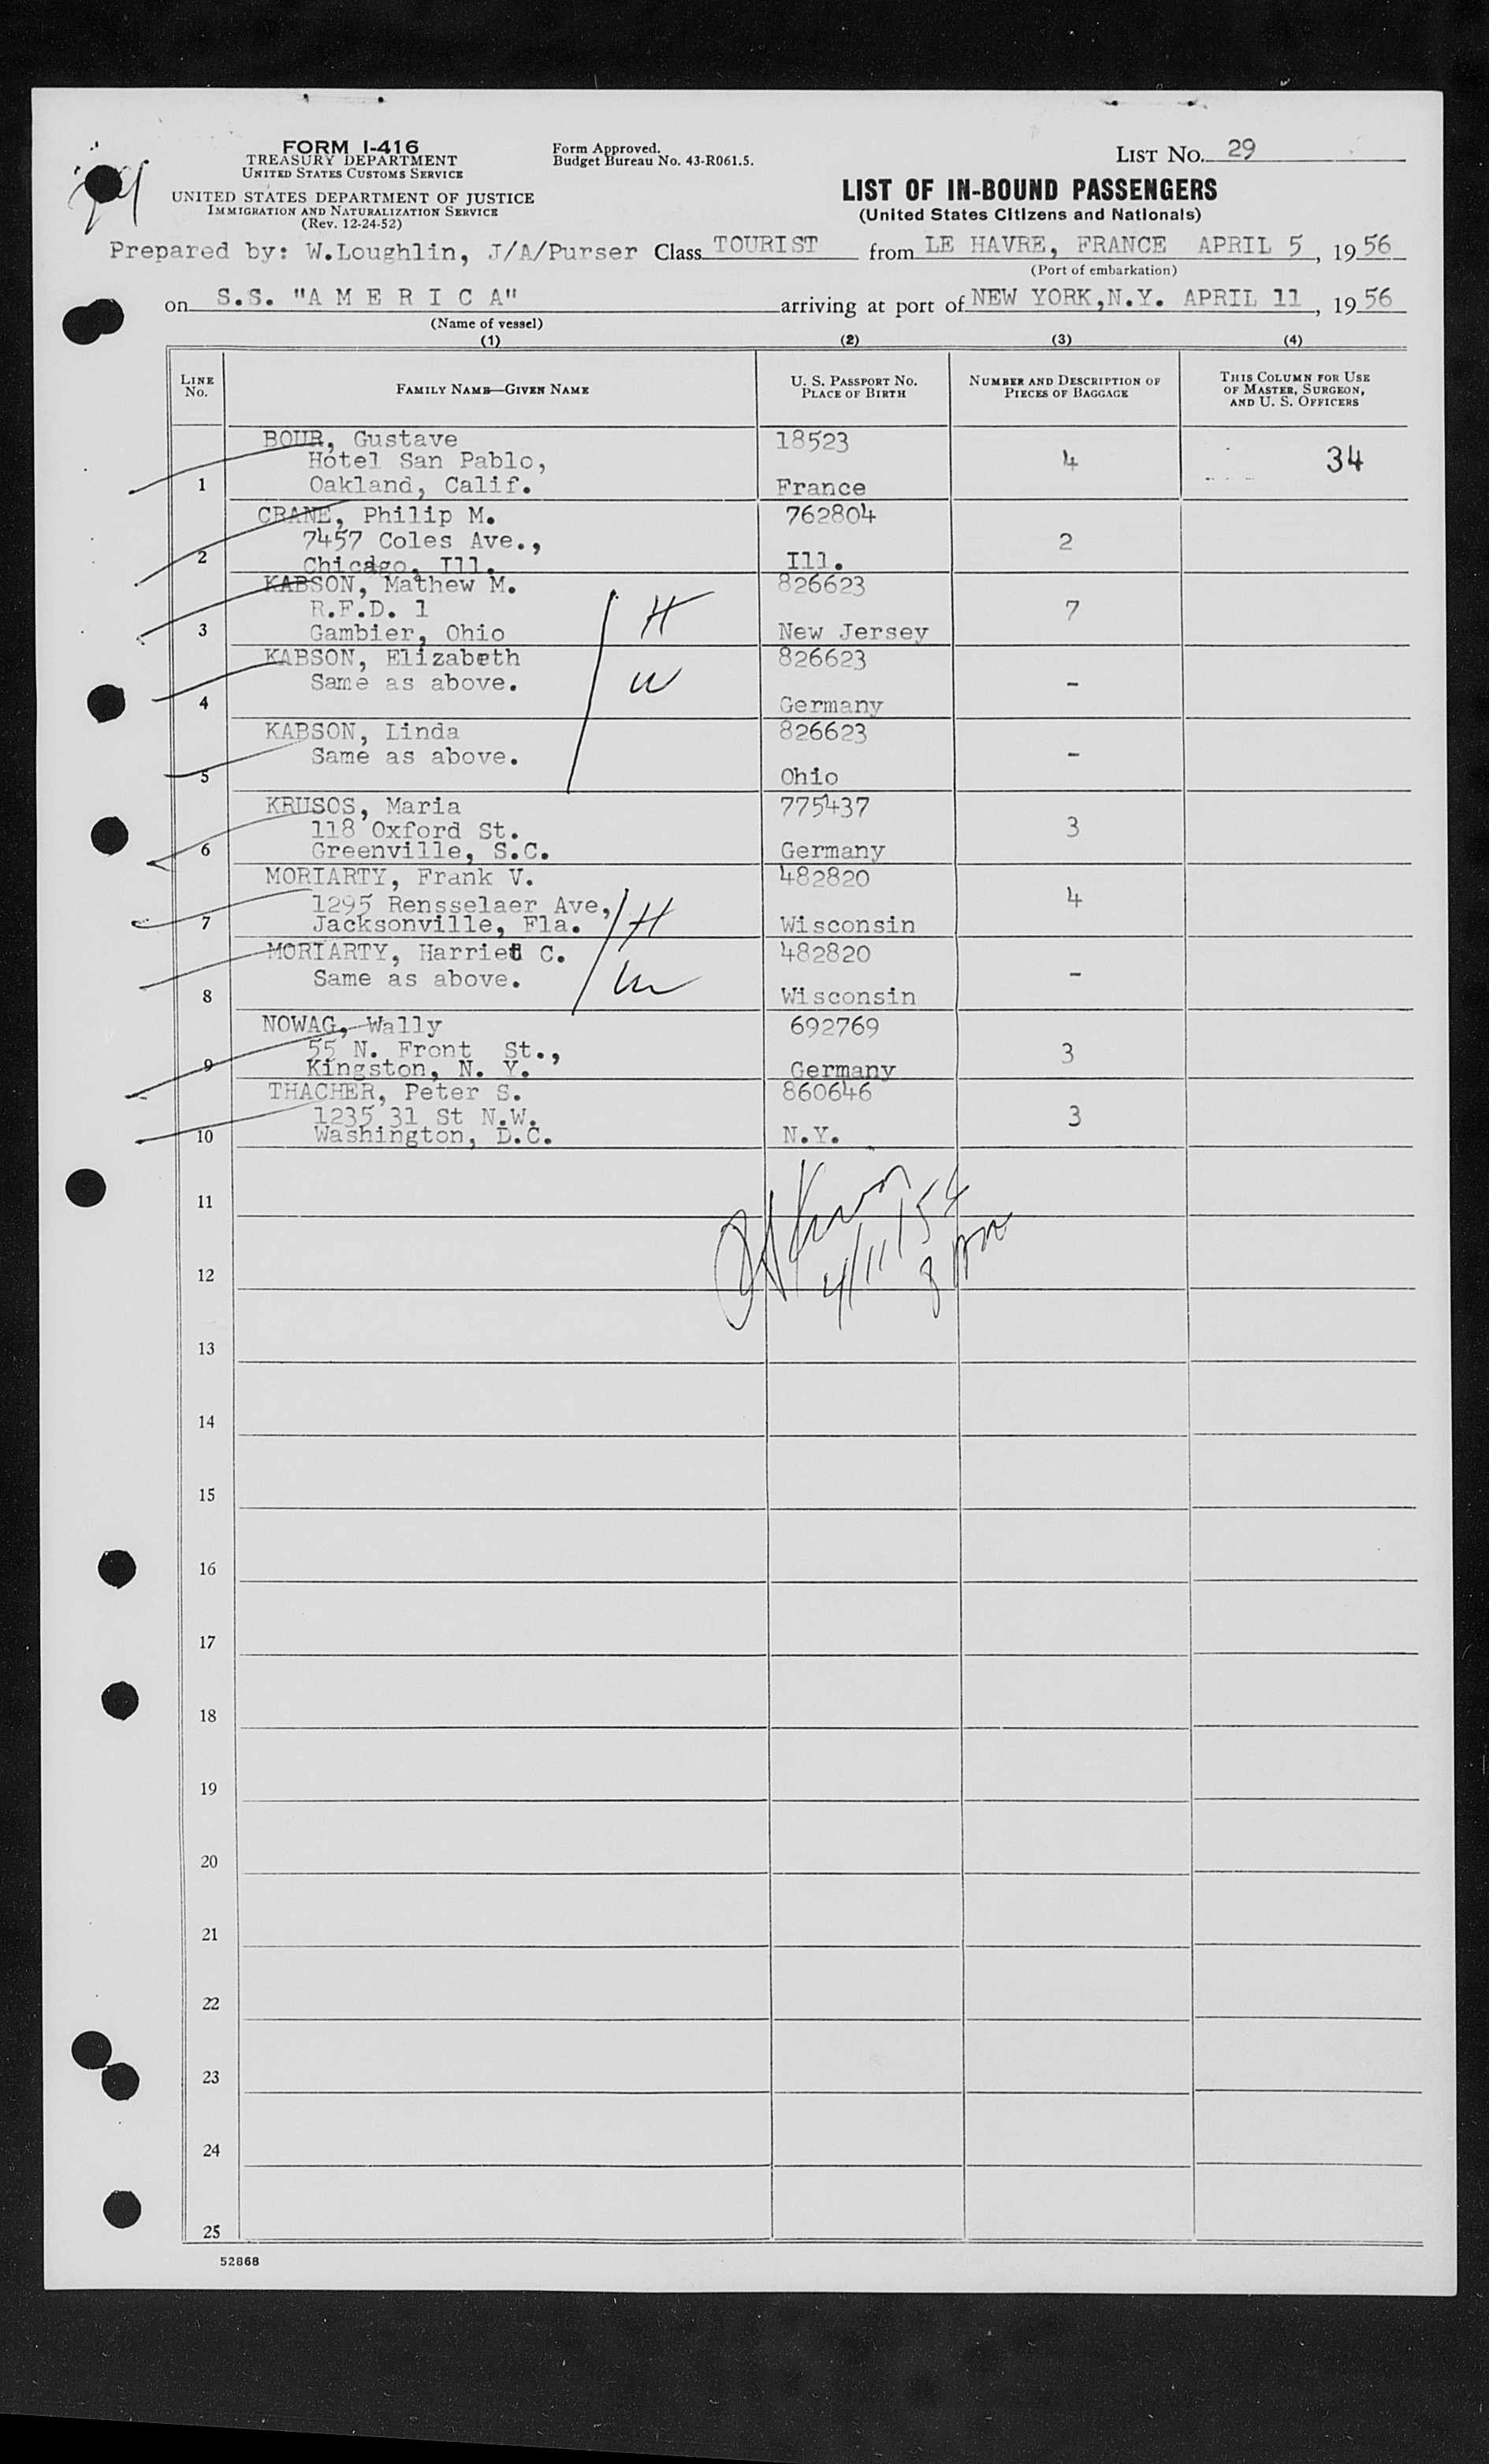 FORM I-416
TREASURY DEPARTMENT
UNITED STATES CUSTOMS SERVICE
UNITED STATES DEPARTMENT OF JUSTICE
IMMIGRATION AND NATURALIZATION SERVICE
(Rev. 12-24-52)
Form Approved.
Budget Bureau No. 43-R061.5.
LIST No. 29
LIST OF IN-BOUND PASSENGERS
(United States Citizens and Nationals)
Prepared by: W.Loughlin, J/A/Purser Class TOURIST from LE HAVRE, FRANCE APRIL 5, 1956
(Port of embarkation)
on S.S. "A M E R I C A" arriving at port of NEW YORK,N.Y. APRIL 11, 1956
(Name of vessel)
(1) (2) (3) (4)
LINE No. FAMILY NAME—GIVEN NAME U. S. PASSPORT NO. PLACE OF BIRTH NUMBER AND DESCRIPTION OF PIECES OF BAGGAGE THIS COLUMN FOR USE OF MASTER, SURGEON, AND U. S. OFFICERS
BOUR, Gustave 18523
Hotel San Pablo, 4 34
1 Oakland, Calif. France
CRANE, Philip M. 762804
7457 Coles Ave., 2
2 Chicago, Ill. Ill.
KABSON, Mathew M. 826623
R.F.D. 1 H 7
3 Gambier, Ohio New Jersey
KABSON, Elizabeth 826623
Same as above. W -
4 Germany
KABSON, Linda 826623
Same as above. -
5 Ohio
KRUSOS, Maria 775437
118 Oxford St. 3
6 Greenville, S.C. Germany
MORIARTY, Frank V. 482820
1295 Rensselaer Ave, 4
7 Jacksonville, Fla. H Wisconsin
MORIARTY, Harriet C. 482820
Same as above. W -
8 Wisconsin
NOWAG, Wally 692769
55 N. Front St., 3
9 Kingston, N. Y. Germany
THACHER, Peter S. 860646
1235 31 St N.W. 3
10 Washington, D.C. N.Y.
11
4/11/56
12
8 pm
13
14
15
16
17
18
19
20
21
22
23
24
25
52868